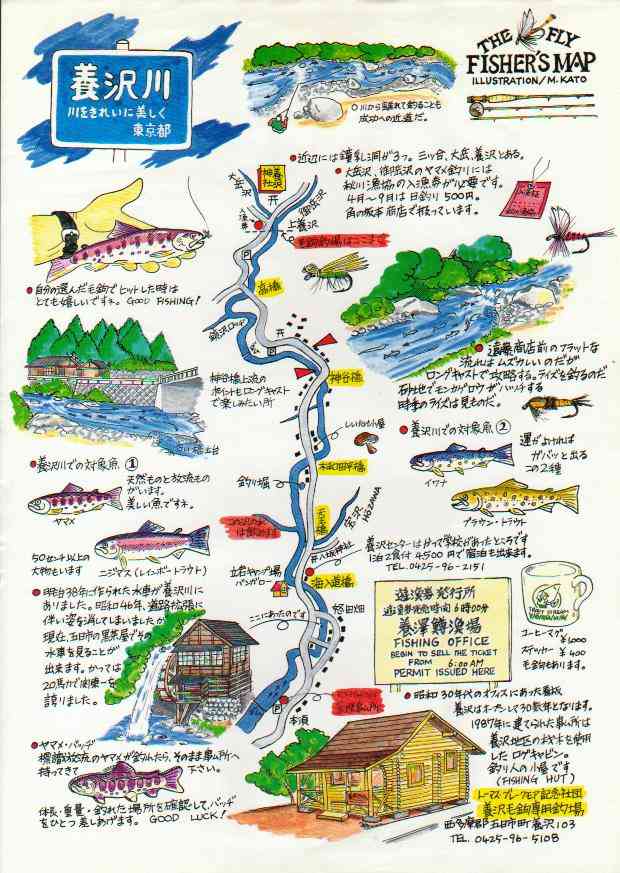 養沢川
川をきれいに美しく
東京都
THE FLY
FISHER'S MAP
ILLUSTRATION/M.KATO
○川から離れて釣ることも
成功への近道だ。
●近辺には鍾乳洞が3つ。三ツ合、大岳、養沢とある。
●大岳沢、御岳沢のヤマメ釣りには
秋川漁協の入漁券が必要です。
4月〜9月は日釣り500円。
角の坂本商店で扱っています。
養沢
神社
大岳沢
御岳沢
上養沢
毛鉤釣場はここまで
●自分の選んだ毛鉤でヒットした時は
とても嬉しいですネ。GOOD FISHING!
高橋
P
神谷橋
神谷橋上流の
ポイントもロングキャスト
で楽しみたい所
●遠藤商店前のフラットな
流れはムズカしいのだが
ロングキャストで攻略する。ライズを釣るのだ
砂地でモンカゲロウがハッチする
時季のライズは見ものだ。
しいたけ小屋
木和田平橋
釣り場
●養沢川での対象魚 ①
天然ものと放流もの
がいます。
美しい魚ですネ。
ヤマメ
50センチ以上の
大物もいます
ニジマス(レインボートラウト)
●養沢川での対象魚 ②
運がよければ
ガバッと出る
この2種
イワナ
ブラウン・トラウト
天王橋
HOZAWA
八坂神社
養沢センターはかつて学校があったところです
1泊2食付4500円で宿泊も出来ます。
TEL.0425-96-2151
キャンプ場
バンガロー
海入道橋
ここにあったのです
怒田畑
●明治38年に作られた水車が養沢川に
ありました。昭和46年、道路拡張に
伴い姿を消してしまいましたが
現在、五日市の黒茶屋でその
水車を見ることが
出来ます。かつては
20馬力で関東一を
誇りました。
遊漁券発行所
遊漁券発売時間6時00分
養澤鱒漁場
FISHING OFFICE
BEGIN TO SELL THE TICKET
FROM 6:00 AM
PERMIT ISSUED HERE
コーヒーマグ ¥1,000
ステッカー ¥400
毛鉤もあります。
●昭和30年代のオフィスにあった看板
養沢はオープンして30数年となります。
1987年に建てられた事ム所は
養沢地区の材木を使用
したログキャビン。
釣り人の小屋です
(FISHING HUT)
P
本須
●ヤマメ・バッヂ
標識放流のヤマメが釣れたら、そのまま事ム所へ
持ってきて下さい。
体長・重量・釣れた場所を確認して、バッヂ
をひとつ差しあげます。GOOD LUCK!
トーマス・ブレークモア記念社団
養沢毛鉤専用釣場
西多摩郡五日市町養沢103
TEL. 0425-96-5108